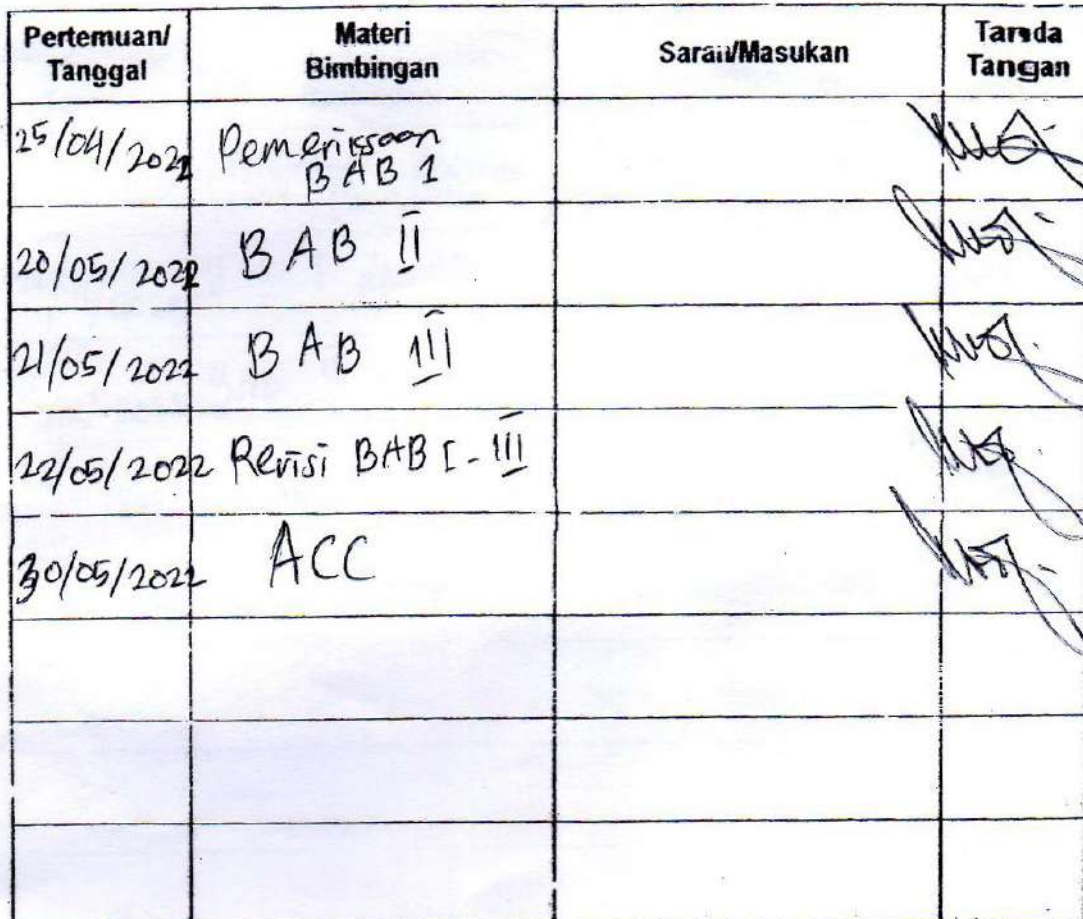 Pertemuan/
Tanggal
Materi
Bimbingan
Saran/Masukan
Tanda
Tangan
25/04/2022
Pemeriksaan
BAB 1
20/05/2022
BAB II
21/05/2022
BAB III
22/05/2022
Revisi BAB I - III
30/05/2022
ACC